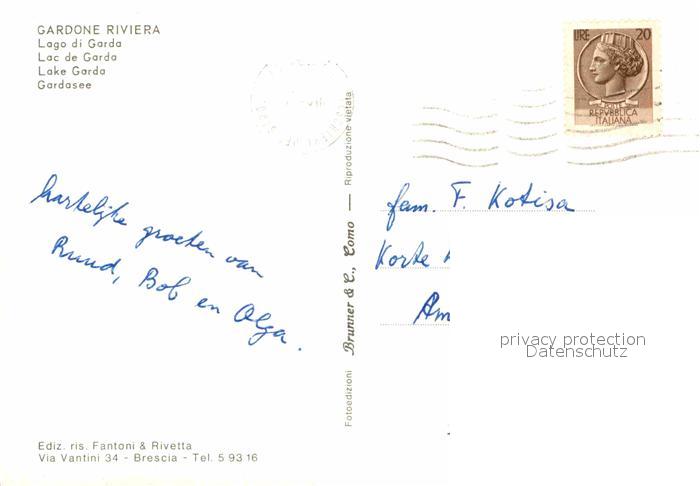 GARDONE RIVIERA
Lago di Garda
Lac de Garda
Lake Garda
Gardasee
LIRE 20
REPVBBLICA
ITALIANA
hartelijke groeten van
Ruud, Bob en Olga.
Fotoedizioni Brunner & C., Como — Riproduzione vietata
fam. F. Kotisa
Korte
Am
privacy protection
Datenschutz
Ediz. ris. Fantoni & Rivetta
Via Vantini 34 - Brescia - Tel. 5 93 16